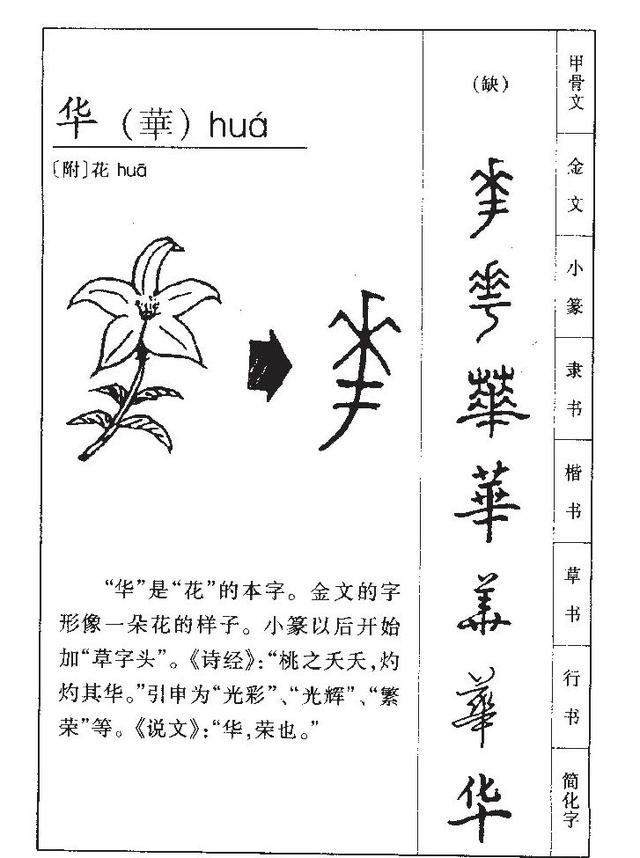 华（華）huá
〔附〕花 huā
“华”是“花”的本字。金文的字
形像一朵花的样子。小篆以后开始
加“草字头”。《诗经》：“桃之夭夭，灼
灼其华。”引申为“光彩”、“光辉”、“繁
荣”等。《说文》：“华，荣也。”
（缺）
甲骨文
金文
小篆
華
隶书
華
楷书
草书
華
行书
华
简化字